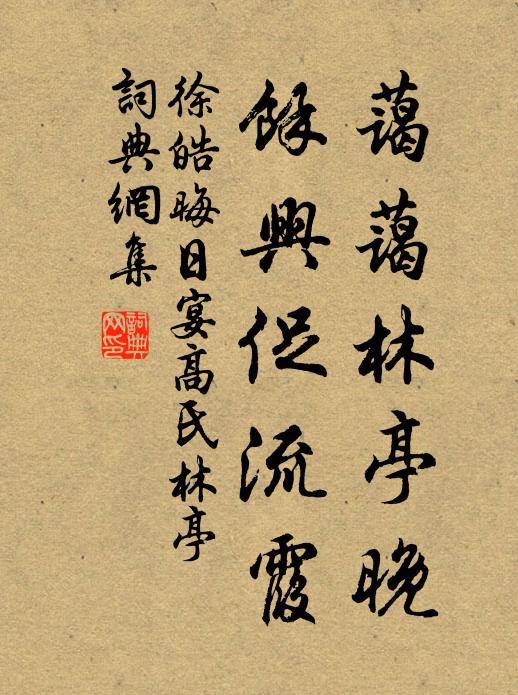 藹藹林亭晚
餘興促流霞
徐皓晦日宴高氏林亭
詞典網集
詞典
网印